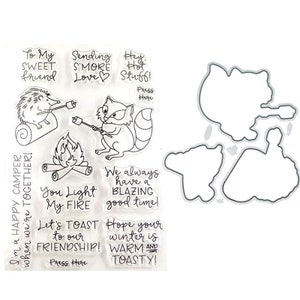 To My
SWEET
friend
Sending
S'MORE
Love
Hey
Hot
Stuff!
PRESS
HERE
I'm a HAPPY CAMPER
when we're TOGETHER!
You Light
My FIRE
We always
have a
BLAZING
good time!
Let's TOAST
to our
FRIENDSHIP!
Hope your
winter is
WARM AND
TOASTY!
PRESS HERE